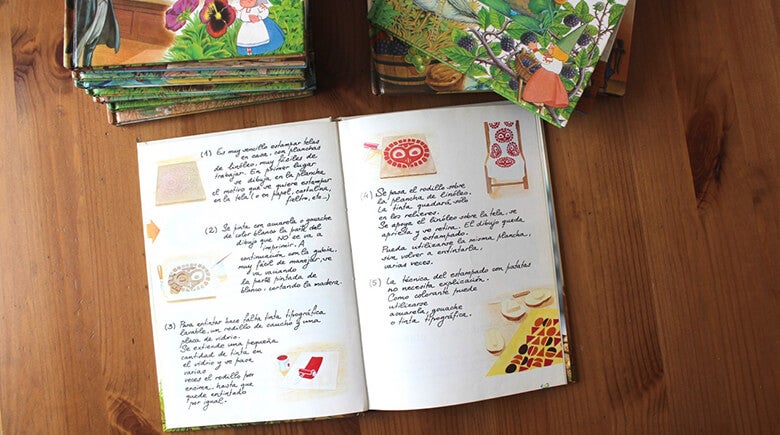 (1) Es muy sencillo estampar telas
en casa, con planchas
de linóleo, muy fáciles de
trabajar. En primer lugar
se dibuja en la plancha
el motivo que se quiere estampar
en la tela (o en papel, cartulina,
fieltro, etc...)
(2) Se pinta con acuarela o gouache
de color blanco la parte del
dibujo que NO se va a
imprimir. A
continuación, con la gubia,
muy fácil de manejar, se
va vaciando
la parte pintada de
blanco, cortando la madera.
(3) Para entintar hace falta tinta tipográfica
lavable, un rodillo de caucho y una
placa de vidrio.
Se extiende una pequeña
cantidad de tinta en
el vidrio y se pasa
varias
veces el rodillo por
encima, hasta que
quede entintado
por igual.
(4) Se pasa el rodillo sobre
la plancha de linóleo.
La tinta quedará sólo
en los relieves.
Se apoya el linóleo sobre la tela, se
aprieta y se retira. El dibujo queda
estampado.
Puede utilizarse la misma plancha,
sin volver a entintarla,
varias veces.
(5) La técnica del estampado con patatas
no necesita explicación.
Como colorante puede
utilizarse
acuarela, gouache
o tinta tipográfica.